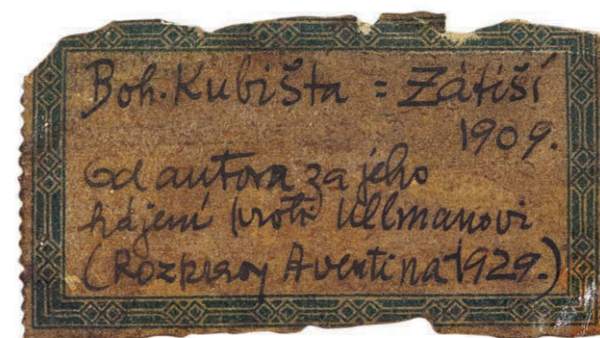 Boh. Kubišta = Zátiší
1909.
Od autora za jeho
hájení proti Ullmanovi
(Rozpravy Aventina 1929.)